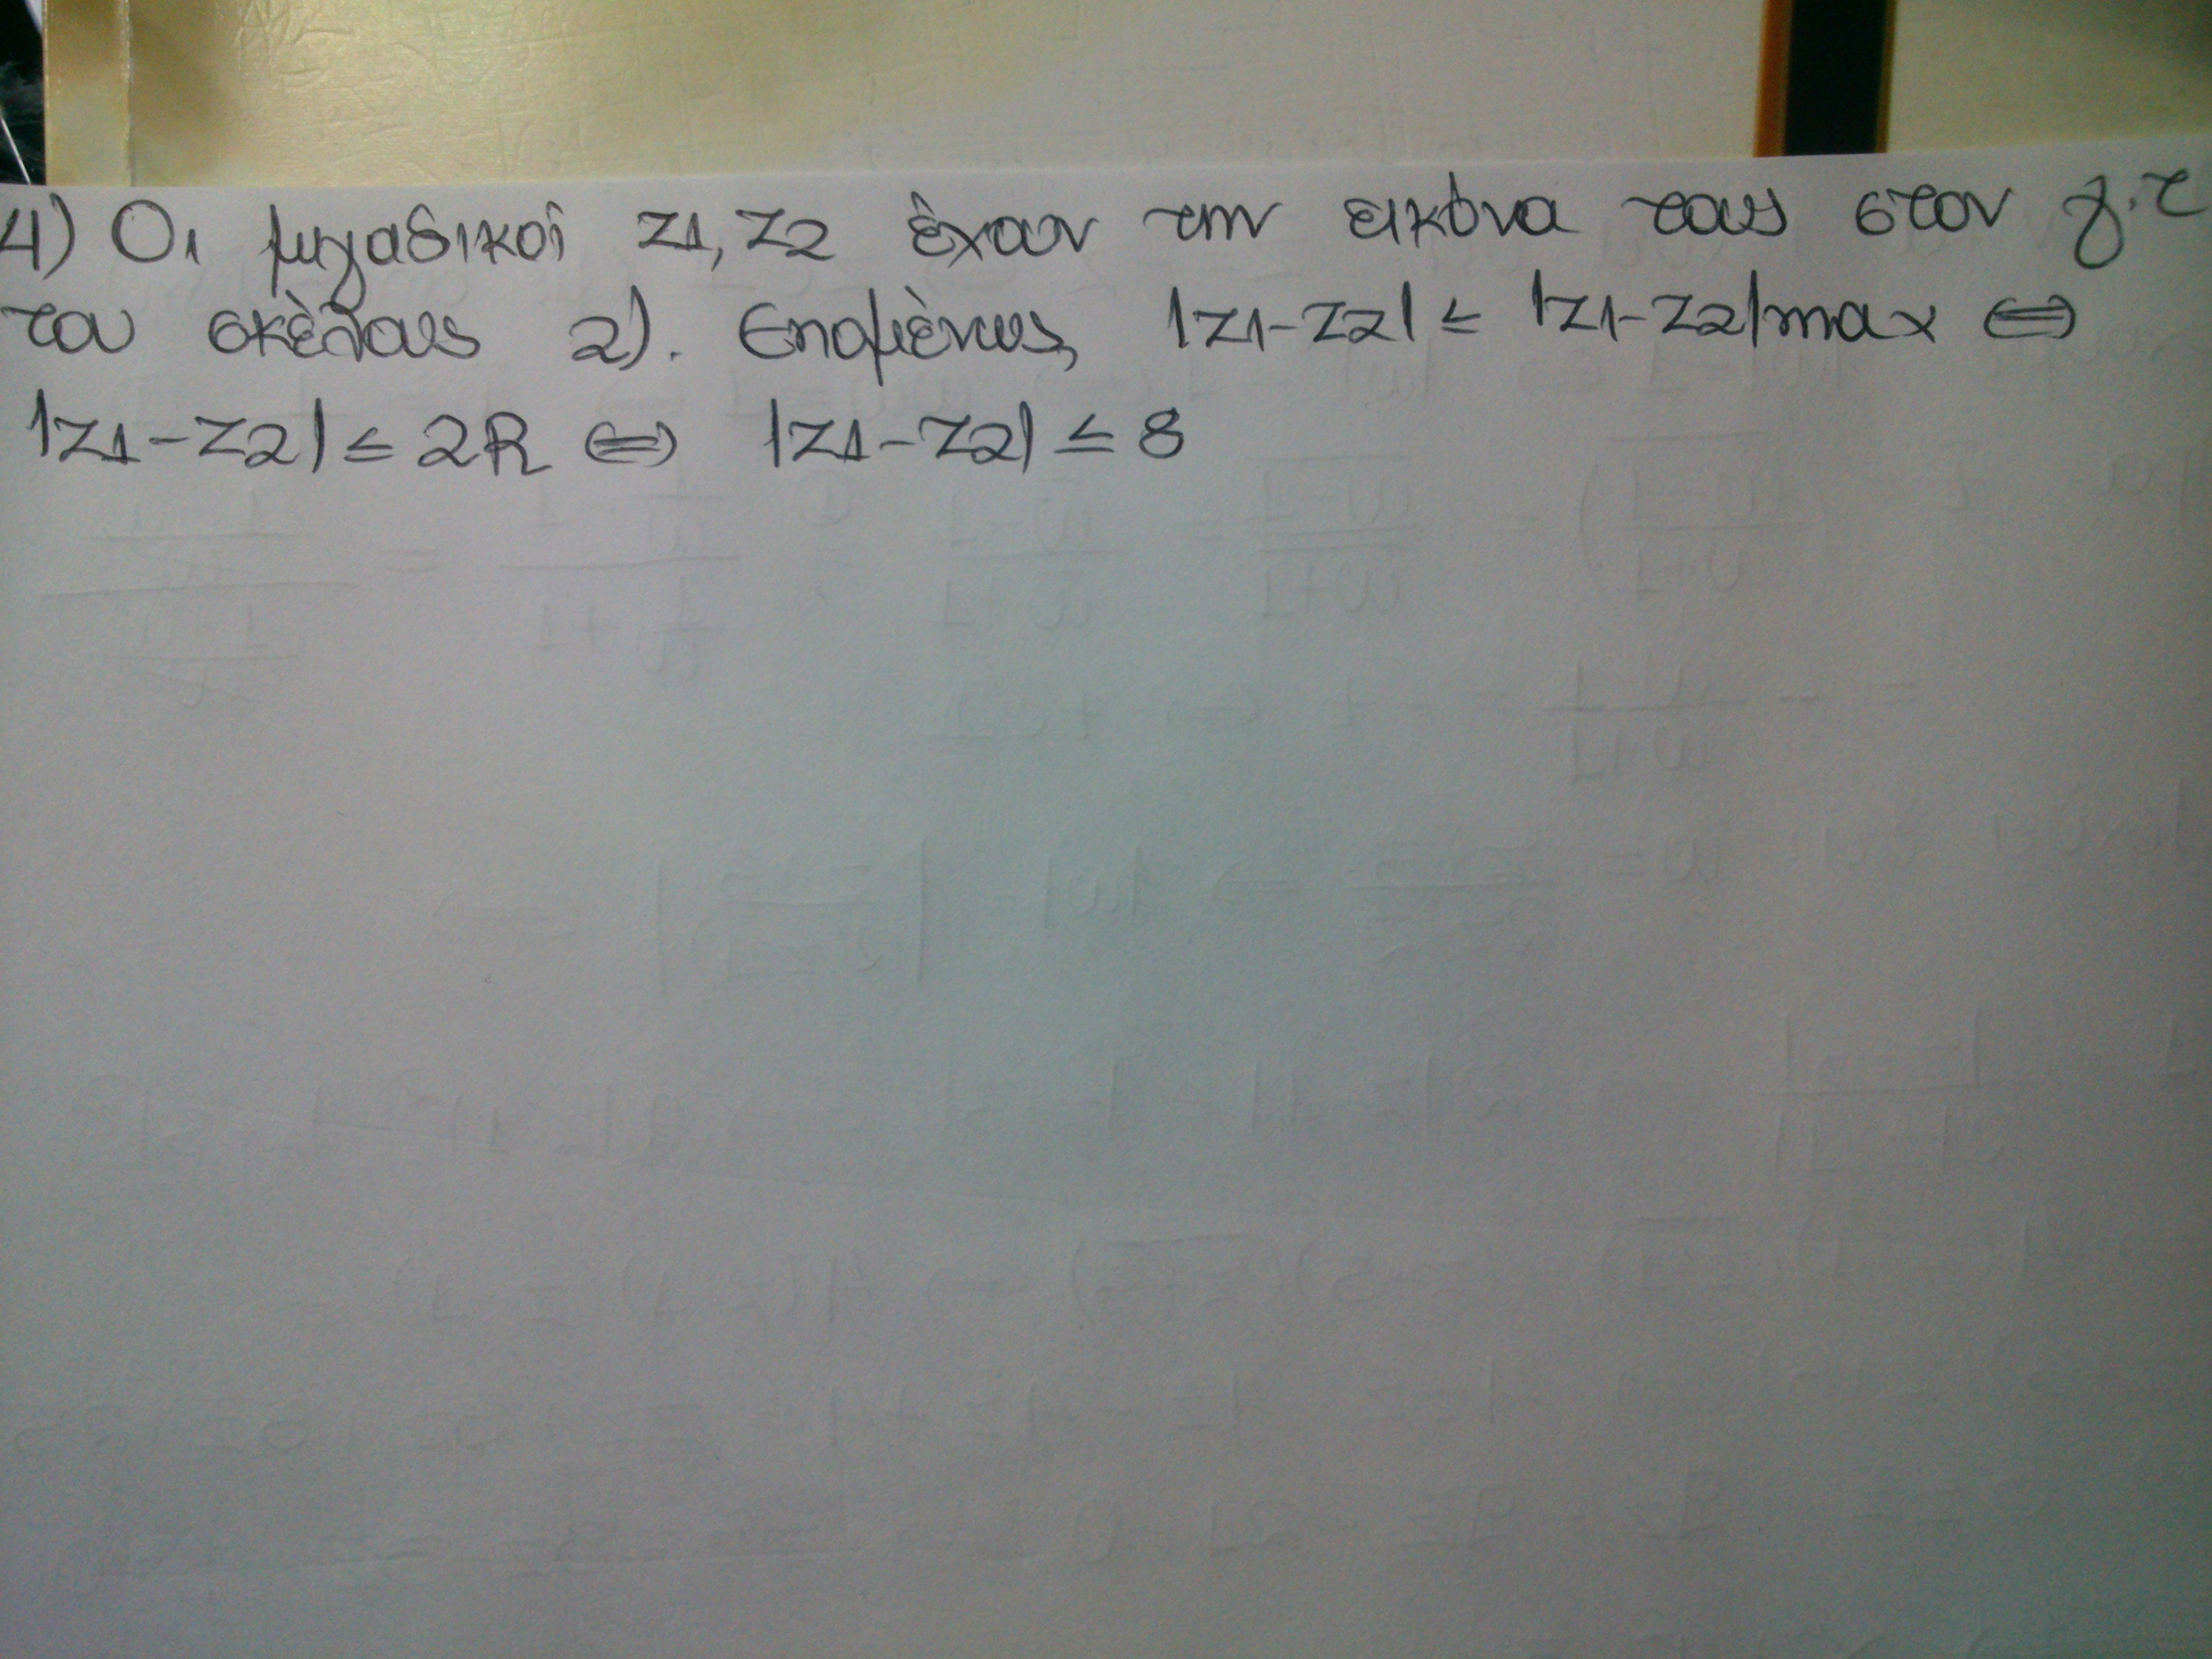 4) Οι μιγαδικοί z1, z2 έχουν την εικόνα τους στον γ.τ
του σκέλους 2). Επομένως, |z1-z2| ≤ |z1-z2|max ⇔
|z1-z2| ≤ 2R ⇔ |z1-z2| ≤ 8